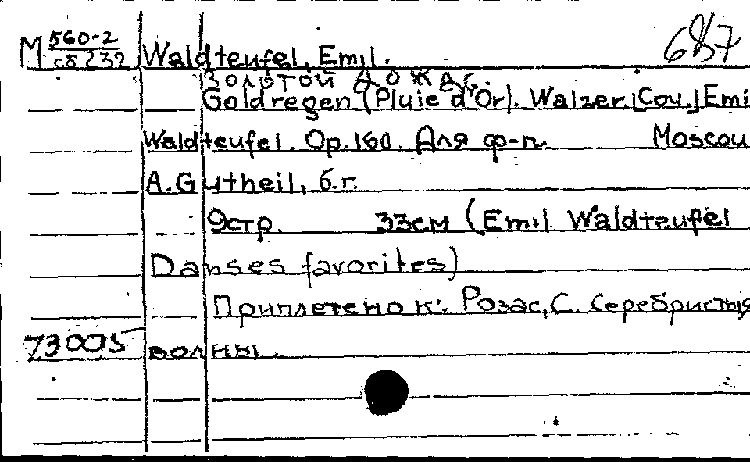 М 560-2 Waldteufel, Emil. 687
сб 232
Золотой дождь.
Goldregen (Pluie d'Or). Walzer [Cov.] Emi
Waldteufel. Op. 160. Для ф-п. Moscou
A. Gutheil, б.г.
9стр. 33см (Emil Waldteufel
Danses favorites)
Приплетено к: Розас, С. Серебристыя
73005 волны.